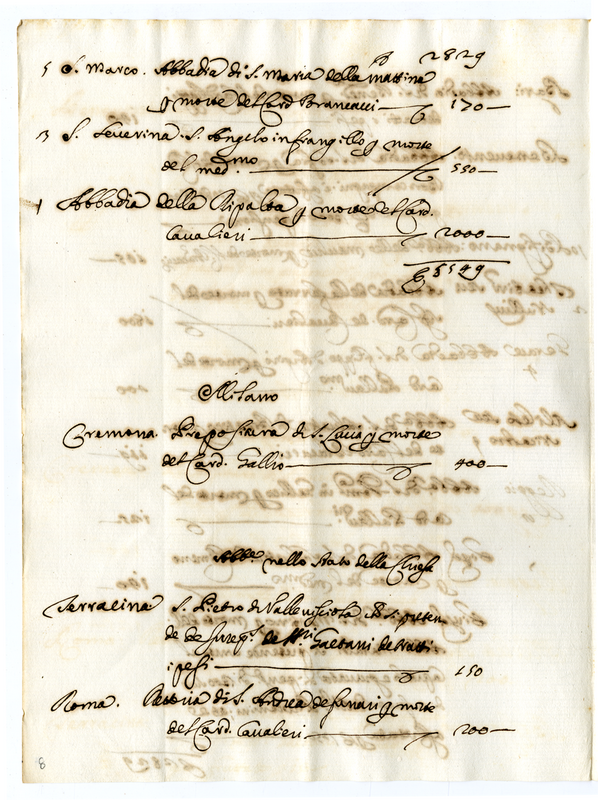 2829
5 S. Marco. Abbadia di S. Maria della Mattina
p morte del Card Brancacci — 170 —
3 S. Severina. S. Angelo in frangillo p morte
del med.mo — 550 —
Abbadia della Ripalta p morte del Card.
Cavalieri — 2000 —
5549
Milano
Cremona. Prepositura di S. Lucia p morte
del Card. Gallio — 400 —
Abb.e nello Stato della Chiesa
Terracina S. Pietro di Vallevisciola
de Gaetani de
— 150
Roma. di S. Andrea de p morte
del Card. Cavalieri — 200 —
8